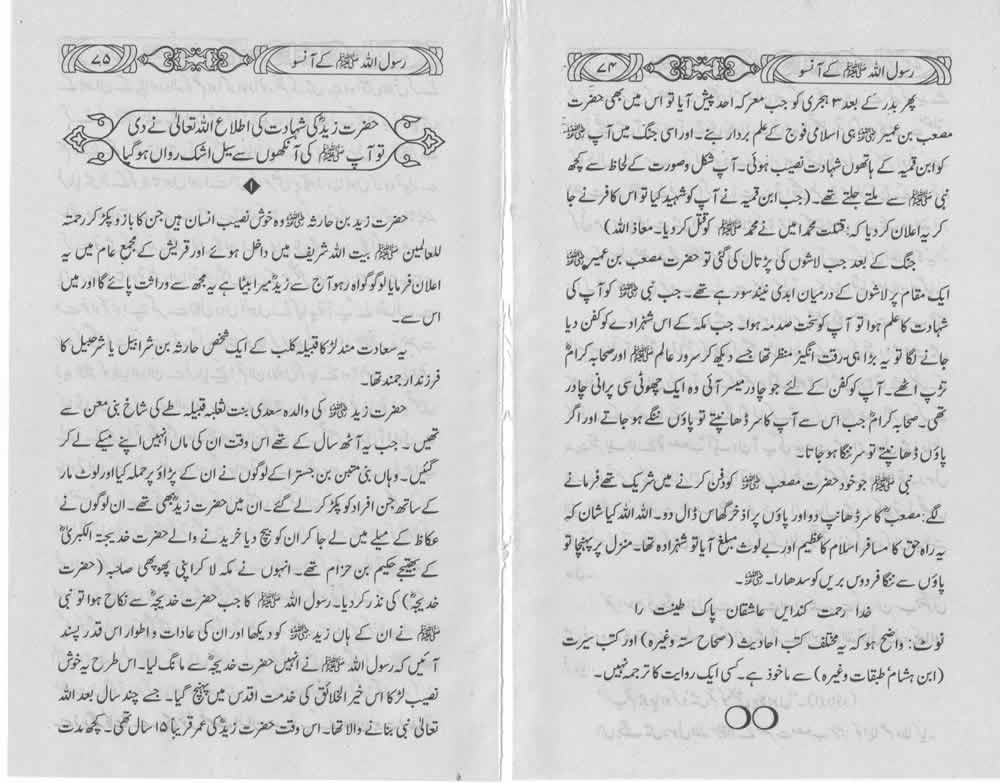 رسول اللہ ﷺ کے آنسو ۷۴
پھر بدر کے بعد ۳ ہجری کو جب معرکہ احد پیش آیا تو اس میں بھی حضرت
مصعب بن عمیرؓ ہی اسلامی فوج کے علم بردار بنے۔ اور اسی جنگ میں آپؓ
کو ابن قمیہ کے ہاتھوں شہادت نصیب ہوئی۔ آپ شکل و صورت کے لحاظ سے کچھ
نبی ﷺ سے ملتے جلتے تھے۔ (جب ابن قمیہ نے آپ کو شہید کیا تو اس کافر نے جا
کر یہ اعلان کر دیا کہ: قتلت محمدا میں نے محمد ﷺ کو قتل کر دیا۔ معاذ اللہ)
جنگ کے بعد جب لاشوں کی پڑتال کی گئی تو حضرت مصعب بن عمیرؓ
ایک مقام پر لاشوں کے درمیان ابدی نیند سو رہے تھے۔ جب نبی ﷺ کو آپ کی
شہادت کا علم ہوا تو آپ کو سخت صدمہ ہوا۔ جب مکہ کے اس شہزادے کو کفن دیا
جانے لگا تو یہ بڑا ہی رقت انگیز منظر تھا جسے دیکھ کر سرور عالم ﷺ اور صحابہ کرامؓ
تڑپ اٹھے۔ آپ کو کفن کے لئے جو چادر میسر آئی وہ ایک چھوٹی سی پرانی چادر
تھی۔ صحابہ کرامؓ جب اس سے آپ کا سر ڈھانپتے تو پاؤں ننگے ہو جاتے اور اگر
پاؤں ڈھانپتے تو سر ننگا ہو جاتا۔
نبی ﷺ جو خود حضرت مصعب ؓ کو دفن کرنے میں شریک تھے فرمانے
لگے: مصعبؓ کا سر ڈھانپ دو اور پاؤں پر اذخر گھاس ڈال دو۔ اللہ اللہ کیا شان کہ
یہ راہ حق کا مسافر اسلام کا عظیم اور بے لوث مبلغ آیا تو شہزادہ تھا۔ منزل پر پہنچا تو
پاؤں سے ننگا فردوس بریں کو سدھارا۔ ؓ ۔
خدا رحمت کند ایں عاشقان پاک طینت را
نوٹ: واضح ہو کہ یہ مختلف کتب احادیث (صحاح ستہ وغیرہ) اور کتب سیرت
(ابن ہشام، طبقات وغیرہ) سے ماخوذ ہے۔ کسی ایک روایت کا ترجمہ نہیں۔
رسول اللہ ﷺ کے آنسو ۷۵
حضرت زیدؓ کی شہادت کی اطلاع اللہ تعالیٰ نے دی
تو آپ ﷺ کی آنکھوں سے سیل اشک رواں ہو گیا
۱
حضرت زید بن حارثہ ؓ وہ خوش نصیب انسان ہیں جن کا بازو پکڑ کر رحمتہ
للعالمین ﷺ بیت اللہ شریف میں داخل ہوئے اور قریش کے مجمع عام میں یہ
اعلان فرمایا لوگو گواہ رہو آج سے زیدؓ میرا بیٹا ہے یہ مجھ سے وراثت پائے گا اور میں
اس سے۔
یہ سعادت مند لڑکا قبیلہ کلب کے ایک شخص حارثہ بن شراہیل یا شرحبیل کا
فرزند ارجمند تھا۔
حضرت زید ؓ کی والدہ سعدی بنت ثعلبہ قبیلہ طے کی شاخ بنی معن سے
تھیں۔ جب یہ آٹھ سال کے تھے اس وقت ان کی ماں انہیں اپنے میکے لے کر
گئیں۔ وہاں بنی متبن بن جستر کے لوگوں نے ان کے پڑاؤ پر حملہ کیا اور لوٹ مار
کے ساتھ جن افراد کو پکڑ کر لے گئے۔ ان میں حضرت زیدؓ بھی تھے۔ ان لوگوں نے
عکاظ کے میلے میں لے جا کر ان کو بیچ دیا خریدنے والے حضرت خدیجتہ الکبریٰؓ
کے بھتیجے حکیم بن حزام تھے۔ انہوں نے مکہ لا کر اپنی پھوپھی صاحبہ (حضرت
خدیجہؓ) کی نذر کر دیا۔ رسول اللہ ﷺ کا جب حضرت خدیجہؓ سے نکاح ہوا تو نبی
ﷺ نے ان کے ہاں زید ؓ کو دیکھا اور ان کی عادات و اطوار اس قدر پسند
آئیں کہ رسول اللہ ﷺ نے انہیں حضرت خدیجہؓ سے مانگ لیا۔ اس طرح یہ خوش
نصیب لڑکا اس خیر الخلائق کی خدمت اقدس میں پہنچ گیا۔ جسے چند سال بعد اللہ
تعالیٰ نبی بنانے والا تھا۔ اس وقت حضرت زیدؓ کی عمر قریباً ۱۵ سال تھی۔ کچھ مدت